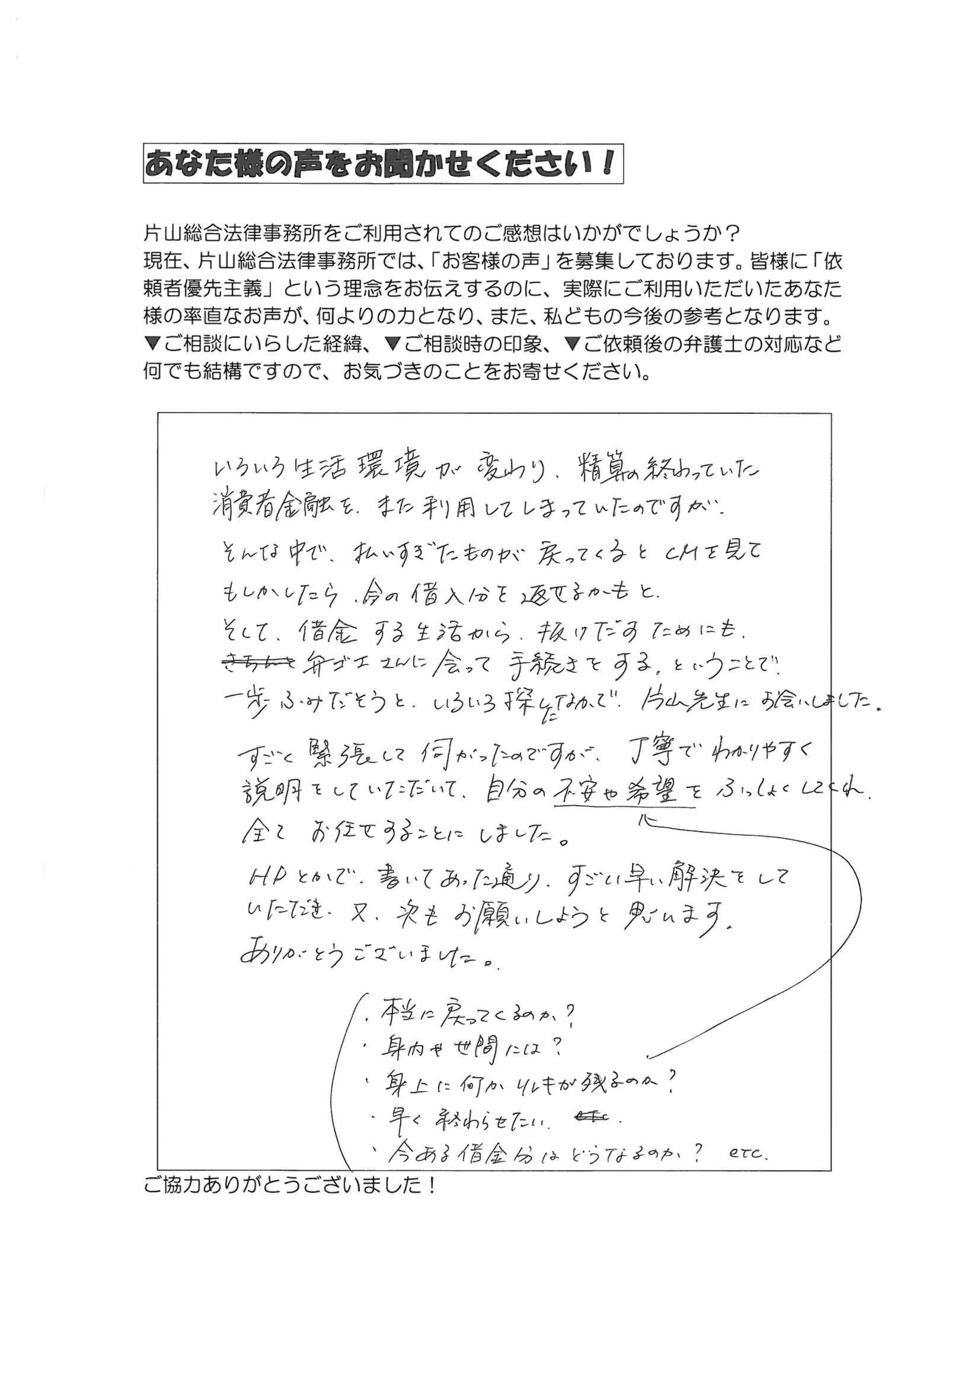 あなた様の声をお聞かせください！
片山総合法律事務所をご利用されてのご感想はいかがでしょうか？
現在、片山総合法律事務所では、「お客様の声」を募集しております。皆様に「依
頼者優先主義」という理念をお伝えするのに、実際にご利用いただいたあなた
様の率直なお声が、何よりの力となり、また、私どもの今後の参考となります。
▼ご相談にいらした経緯、▼ご相談時の印象、▼ご依頼後の弁護士の対応など
何でも結構ですので、お気づきのことをお寄せください。
いろいろ生活環境が変わり、精算の終わっていた
消費者金融を、また利用してしまっていたのですが、
そんな中で、払いすぎたものが戻ってくるとCMを見て
もしかしたら、今の借入分を返せるかもと、
そして、借金する生活から、抜けだすためにも、
きちんと 弁ゴ士さんに会って手続きをする。ということで、
一歩ふみだそうと、いろいろ探したなかで、片山先生にお会いしました。
すごく緊張して伺がったのですが、丁寧でわかりやすく
説明をしていただいて、自分の不安や希望をふっしょくしてくれ、
全てお任せすることにしました。
HPとかで、書いてあった通り、すごい早い解決をして
いただき、又、次もお願いしようと思います。
ありがとうございました。
・本当に戻ってくるのか？
・身内や世間には？
・身上に何かリレキが残るのか？
・早く終わらせたい、 etc.
・今ある借金分はどうなるのか？ etc.
ご協力ありがとうございました！